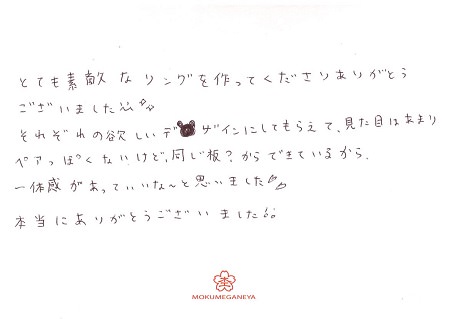 とても素敵なリングを作ってくださりありがとう
ございました
それぞれの欲しいデザインにしてもらえて、見た目はあまり
ペアっぽくないけど、同じ板？からできているから、
一体感があっていいな〜と思いました
本当にありがとうございました
MOKUMEGANEYA